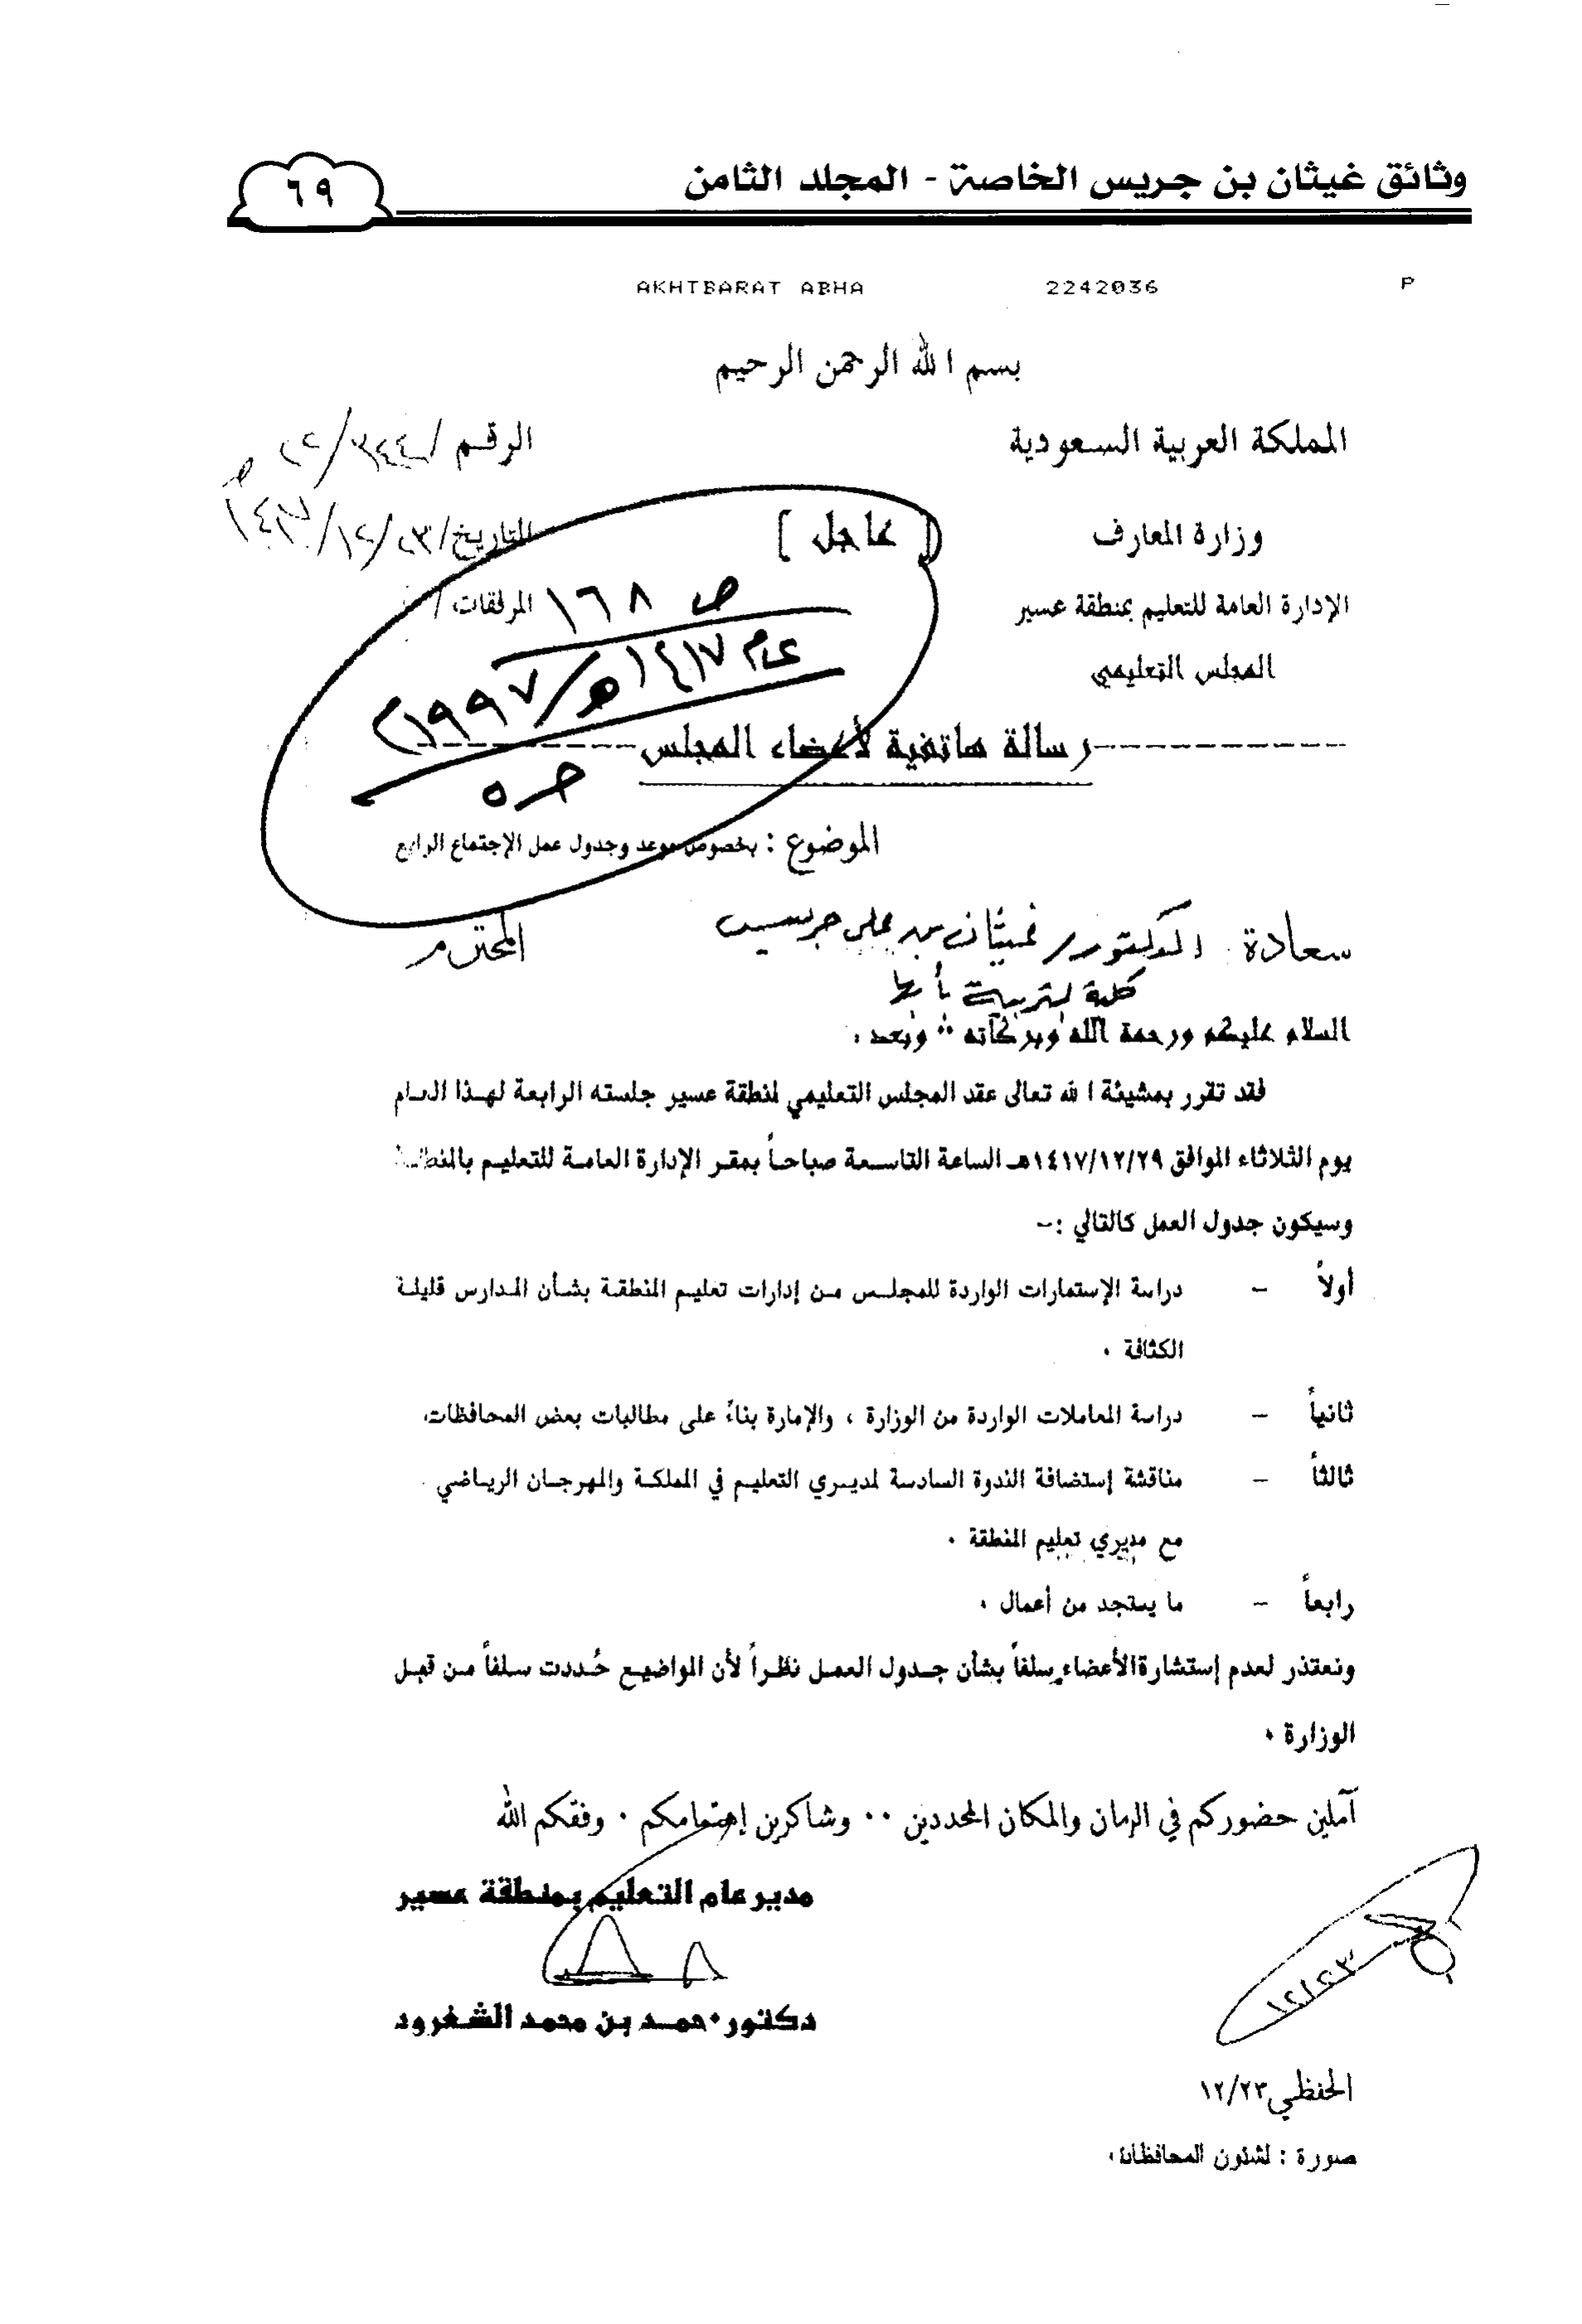 وثائق غيثان بن جريس الخاصة - المجلد الثامن
٦٩
AKHTBARAT ABHA 2242036 P
بسم الله الرحمن الرحيم
المملكة العربية السعودية
الرقم /
وزارة المعارف
[ عاجل ]
التاريخ/ ٢٣/١٢/١٤١٧
الإدارة العامة للتعليم بمنطقة عسير
ص ١٦٨
المرفقات /
عام ١٤١٧هـ/١٩٩٧م
المجلس التعليمي
رسالة هاتفية لأعضاء المجلس
الموضوع : بخصوص موعد وجدول عمل الإجتماع الرابع
سعادة الدكتور / غيثان بن علي جريس المحترم
كلية التربية بأبها
السلام عليكم ورحمة الله وبركاته .. وبعد ،
فقد تقرر بمشيئة الله تعالى عقد المجلس التعليمي لمنطقة عسير جلسته الرابعة لهذا العام
يوم الثلاثاء الموافق ١٤١٧/١٢/٢٩هـ الساعة التاسعة صباحاً بمقر الإدارة العامة للتعليم بالمنطقة
وسيكون جدول العمل كالتالي :-
أولاً - دراسة الإستمارات الواردة للمجلس من إدارات تعليم المنطقة بشأن المدارس قليلة
الكثافة .
ثانياً - دراسة المعاملات الواردة من الوزارة ، والإمارة بناءً على مطالبات بعض المحافظات.
ثالثاً - مناقشة إستضافة الندوة السادسة لمديري التعليم في المملكة والمهرجان الرياضي
مع مديري تعليم المنطقة .
رابعاً - ما يستجد من أعمال .
ونعتذر لعدم إستشارة الأعضاء سلفاً بشأن جدول العمل نظراً لأن المواضيع حُددت سلفاً من قبل
الوزارة .
آملين حضوركم في الزمان والمكان المحددين .. وشاكرين إهتمامكم . وفقكم الله
مدير عام التعليم بمنطقة عسير
١٢/٢٣
دكتور حمد بن محمد الشغرود
الحفظي ١٢/٢٣
صورة : لشئون المحافظات .